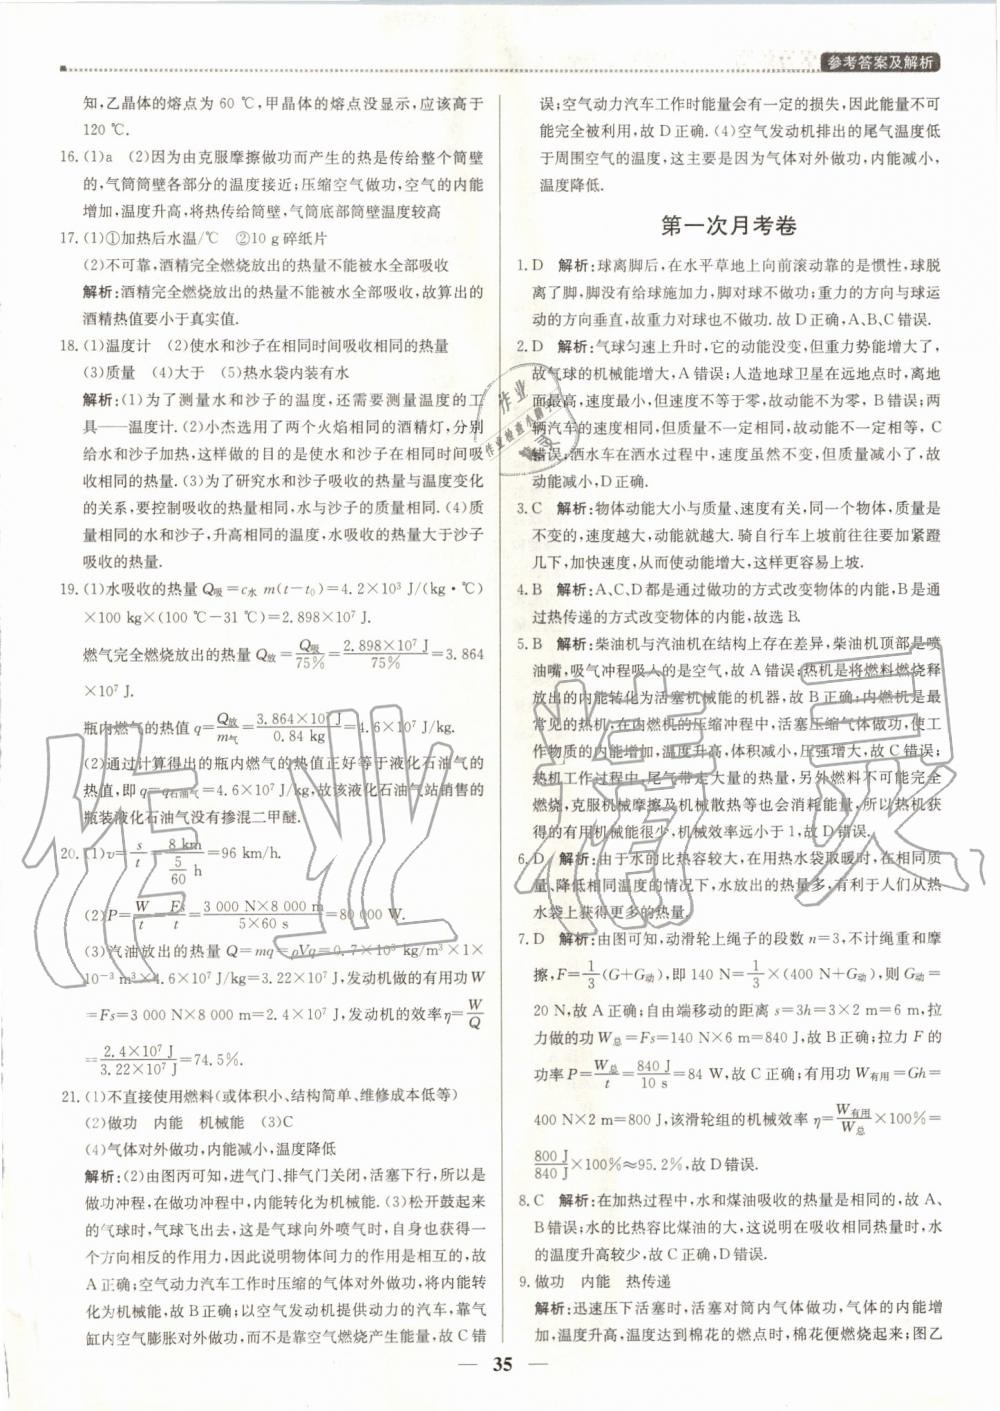 参考答案及解析
知,乙晶体的熔点为 60 ℃,甲晶体的熔点没显示,应该高于
120 ℃.
16. (1)a (2)因为由克服摩擦做功而产生的热是传给整个筒壁
的,气筒筒壁各部分的温度接近;压缩空气做功,空气的内能
增加,温度升高,将热传给筒壁,气筒底部筒壁温度较高
17. (1)①加热后水温/℃ ②10 g 碎纸片
(2)不可靠,酒精完全燃烧放出的热量不能被水全部吸收
解析:酒精完全燃烧放出的热量不能被水全部吸收,故算出的
酒精热值要小于真实值.
18. (1)温度计 (2)使水和沙子在相同时间吸收相同的热量
(3)质量 (4)大于 (5)热水袋内装有水
解析:(1)为了测量水和沙子的温度,还需要测量温度的工
具——温度计. (2)小杰选用了两个火焰相同的酒精灯,分别
给水和沙子加热,这样做的目的是使水和沙子在相同时间吸
收相同的热量. (3)为了研究水和沙子的热量与温度变化
的关系,要控制吸收的热量相同,水与沙子的质量相同. (4)质
量相同的水和沙子,升高相同的温度,水吸收的热量大于沙子
吸收的热量.
19. (1)水吸收的热量 Q吸=c水 m(t-t0)=4.2×10³ J/(kg·℃)
×100 kg×(100 ℃-31 ℃)=2.898×10⁷ J.
燃气完全燃烧放出的热量 Q放=Q吸/75%=2.898×10⁷ J/75%=3.864
×10⁷ J.
瓶内燃气的热值 q=Q放/m气=3.864×10⁷ J/0.84 kg=4.6×10⁷ J/kg.
(2)通过计算得出的瓶内燃气的热值正好等于液化石油气的
热值,即 q=q石油气=4.6×10⁷ J/kg,故该液化石油气站销售的
瓶装液化石油气没有掺混二甲醚.
20. (1)v=s/t=8 km/(5/60 h)=96 km/h.
(2)P=W/t=Fs/t=3 000 N×8 000 m/5×60 s=80 000 W.
(3)汽油放出的热量 Q=mq=ρVq=0.7×10³ kg/m³×1×
10⁻³ m³×4.6×10⁷ J/kg=3.22×10⁷ J,发动机做的有用功 W
=Fs=3 000 N×8 000 m=2.4×10⁷ J,发动机的效率 η=W/Q
=2.4×10⁷ J/3.22×10⁷ J=74.5%.
21. (1)不直接使用燃料(或体积小、结构简单、维修成本低等)
(2)做功 内能 机械能 (3)C
(4)气体对外做功,内能减小,温度降低
解析:(2)由图丙可知,进气门、排气门关闭,活塞下行,所以是
做功冲程,在做功冲程中,内能转化为机械能. (3)松开鼓起来
的气球时,气球飞出去,这是气球向外喷气时,自身也获得一
个方向相反的作用力,因此说明物体间力的作用是相互的,故
A 正确;空气动力汽车工作时压缩的气体对外做功,将内能转
化为机械能,故 B 正确;以空气发动机提供动力的汽车,靠气
缸内空气膨胀对外做功,而不是靠空气燃烧产生能量,故 C 错
误;空气动力汽车工作时能量会有一定的损失,因此能量不可
能完全被利用,故 D 正确. (4)空气发动机排出的尾气温度低
于周围空气的温度,这主要是因为气体对外做功,内能减小,
温度降低.
第一次月考卷
1. D 解析:球离脚后,在水平草地上向前滚动靠的是惯性,球脱
离了脚,脚没有给球施加力,脚对球不做功;重力的方向与球运
动的方向垂直,故重力对球也不做功. 故 D 正确,A、B、C 错误.
2. D 解析:气球匀速上升时,它的动能没变,但重力势能增大了,
故气球的机械能增大,A 错误;人造地球卫星在远地点时,离地
面最高,速度最小,但速度不等于零,故动能不为零,B 错误;两
辆汽车的速度相同,但质量不一定相同,故动能不一定相等,C
错误;洒水车在洒水过程中,速度虽然不变,但质量减小了,故
动能减小,D 正确.
3. C 解析:物体动能大小与质量、速度有关,同一个物体,质量是
不变的,速度越大,动能就越大. 骑自行车上坡前往往要加紧蹬
几下,加快速度,从而使动能增大,这样更容易上坡.
4. B 解析:A、C、D 都是通过做功的方式改变物体的内能,B 是通
过热传递的方式改变物体的内能,故选 B.
5. B 解析:柴油机与汽油机在结构上存在差异,柴油机顶部是喷
油嘴,吸气冲程吸入的是空气,故 A 错误;热机是将燃料燃烧释
放出的内能转化为活塞机械能的机器,故 B 正确;内燃机是最
常见的热机,在内燃机的压缩冲程中,活塞压缩气体做功,使工
作物质的内能增加,温度升高,体积减小,压强增大,故 C 错误;
热机工作过程中,尾气带走大量的热量,另外燃料不可能完全
燃烧,克服机械摩擦及机械散热等也会消耗能量,所以热机获
得的有用机械能很少,机械效率远小于 1,故 D 错误.
6. D 解析:由于水的比热容较大,在用热水袋取暖时,在相同质
量、降低相同温度的情况下,水放出的热量多,有利于人们从热
水袋上获得更多的热量.
7. D 解析:由图可知,动滑轮上绳子的段数 n=3,不计绳重和摩
擦,F=1/3(G+G动),即 140 N=1/3×(400 N+G动),则 G动=
20 N,故 A 正确;自由端移动的距离 s=3h=3×2 m=6 m,拉
力做的功 W总=Fs=140 N×6 m=840 J,故 B 正确;拉力 F 的
功率 P=W总/t=840 J/10 s=84 W,故 C 正确;有用功 W有用=Gh=
400 N×2 m=800 J,该滑轮组的机械效率 η=W有用/W总×100%=
800 J/840 J×100%≈95.2%,故 D 错误.
8. C 解析:在加热过程中,水和煤油吸收的热量是相同的,故 A、
B 错误;水的比热容比煤油的大,这说明在吸收相同热量时,水
的温度升高较少,故 C 正确,D 错误.
9. 做功 内能 热传递
解析:迅速压下活塞时,活塞对筒内气体做功,气体的内能增
加,温度升高,温度达到棉花的燃点时,棉花便燃烧起来;图乙
35
作业精灵